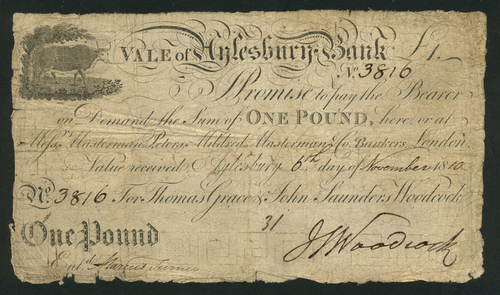 VALE of Aylesbury Bank £1.
No. 3816
I Promise to pay the Bearer
on Demand the Sum of ONE POUND, here, or at
Messrs. Masterman Peters Mildred Masterman & Co. Bankers, London
Value received Aylesbury 6th day of November 1810
No. 3816 For Thomas Grace & John Saunders Woodcock
31
One Pound
JS Woodcock
Entd.